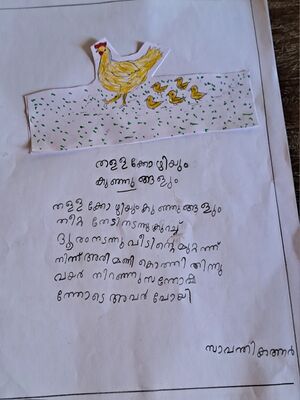 തള്ളക്കോഴിയും
കുഞ്ഞുങ്ങളും
തള്ളക്കോഴിയും കുഞ്ഞുങ്ങളും
തീറ്റ തേടിനടന്നു കുറച്ച്
ദൂരം നടന്നു വീടിന്റെ മുറ്റത്ത്
നിന്ന് അരിമണി കൊത്തി തിന്നു
വയർ നിറഞ്ഞു സന്തോഷ
ത്തോടെ അവർ പോയി